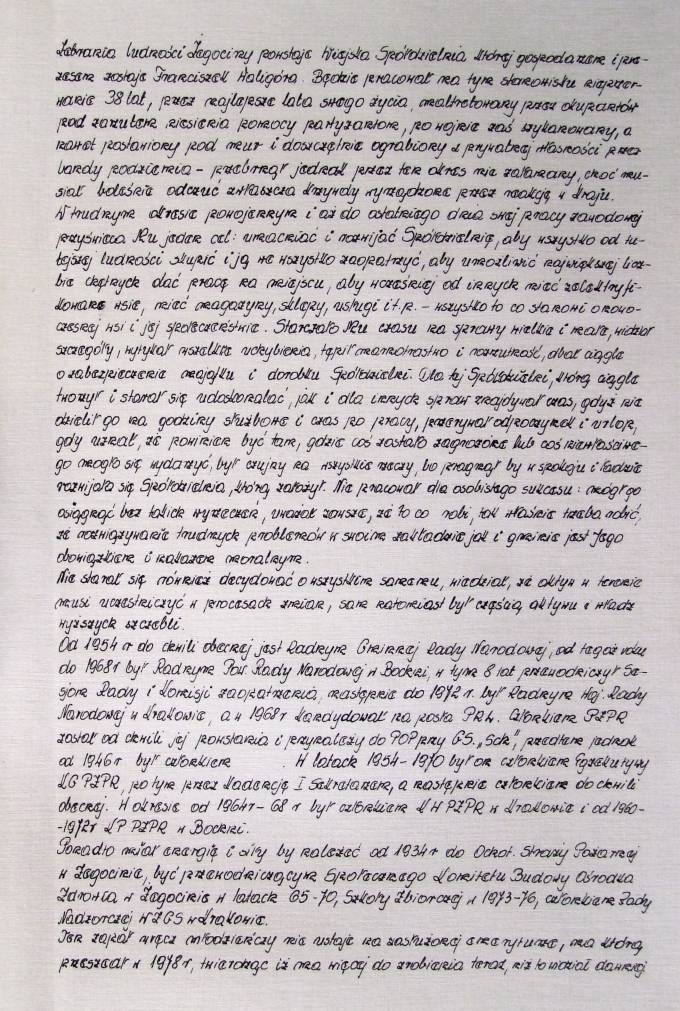 Zebrania ludności Żegociny powstaje Wiejska Spółdzielnia której gospodarzem i pre-
zesem zostaje Franciszek Kaligóra. Będzie pracował na tym stanowisku nieprzer-
wanie 38 lat, przez najlepsze lata swego życia, maltretowany przez okupantów
pod zarzutem niesienia pomocy partyzantom, po wojnie zaś szykanowany, a
nawet postawiony pod mur i doszczętnie ograbiony z prywatnej własności przez
bandy podziemia - przebrnął jednak przez ten okres nie załamany, choć mu-
siał boleśnie odczuć zwłaszcza krzywdy wyrządzone przez reakcję w kraju.
W trudnym okresie powojennym i aż do ostatniego dnia swej pracy zawodowej
przyświeca Mu jeden cel: umacniać i rozwijać Spółdzielnię, aby wszystko od tu-
tejszej ludności skupić i ją we wszystko zaopatrzyć, aby umożliwić największej licz-
bie chętnych dać pracę na miejscu, aby wcześniej od innych mieć zelektryfi-
kowane wsie, mieć magazyny, sklepy, usługi i t.p. - wszystko to co stanowi o nowo-
czesnej wsi i jej społeczeństwie. Starczało Mu czasu na sprawy wielkie i małe, widział
szczegóły, wytykał wszelkie uchybienia, tępił marnotrastwo i rozrzutność, dbał ciągle
o zabezpieczenie majątku i dorobku Spółdzielni. Dla tej Spółdzielni, którą ciągle
tworzył i starał się udoskonalać, jak i dla innych spraw znajdywał czas, gdyż nie
dzielił go na godziny służbowe i czas po pracy, przerywał odpoczynek i urlop,
gdy uznał, że powinien być tam, gdzie coś zostało zagrożone lub coś niewłaściwe-
go mogło się wydarzyć, był czujny na wszystkie rzeczy, bo pragnął by w spokoju i ładzie
rozwijała się Spółdzielnia, którą założył. Nie pracował dla osobistego sukcesu: mógł go
osiągnąć bez takich wyrzeczeń, uważał zawsze, że to co robi, tak właśnie trzeba robić,
że rozwiązywanie trudnych problemów w swoim zakładzie jak i gminie jest Jego
obowiązkiem i nakazem moralnym.
Nie starał się również decydować o wszystkim samemu, wiedział, że aktyw w terenie
musi uczestniczyć w procesach zmian, sam natomiast był częścią aktywu i władz
wyższych szczebli.
Od 1954 r do chwili obecnej jest Radnym Gminnej Rady Narodowej, od tegoż roku
do 1968 r był Radnym Pow. Rady Narodowej w Bochni, w tym 8 lat przewodniczył Se-
sjom Rady i Komisji zaopatrzenia, następnie do 1972 r. był Radnym Woj. Rady
Narodowej w Krakowie, a w 1968 r kandydował na posła PRL. Członkiem PZPR
został od chwili jej powstania i przynależy do POP przy G.S. „Sch”, przedtem jednak
od 1946 r był członkiem . W latach 1954-1970 był on członkiem Egzekutywy
KG PZPR, po tym przez kadencję I Sekretarzem, a następnie członkiem do chwili
obecnej. W okresie od 1964 r - 68 r był członkiem KW PZPR w Krakowie i od 1960-
-1972 r KP PZPR w Bochni.
Ponadto miał energię i siły by należeć od 1934 r do Ochot. Straży Pożarnej
w Żegocinie, być przewodniczącym Społecznego Komitetu Budowy Ośrodka
Zdrowia w Żegocinie w latach 65-70, Szkoły Zbiorczej w 1973-76, członkiem Rady
Nadzorczej WZGS w Krakowie.
Ten zapał wręcz młodzieńczy nie ustaje na zasłużonej emeryturze, na którą
przeszedł w 1978 r, twierdząc iż ma więcej do zrobienia teraz, niż to widział dawniej